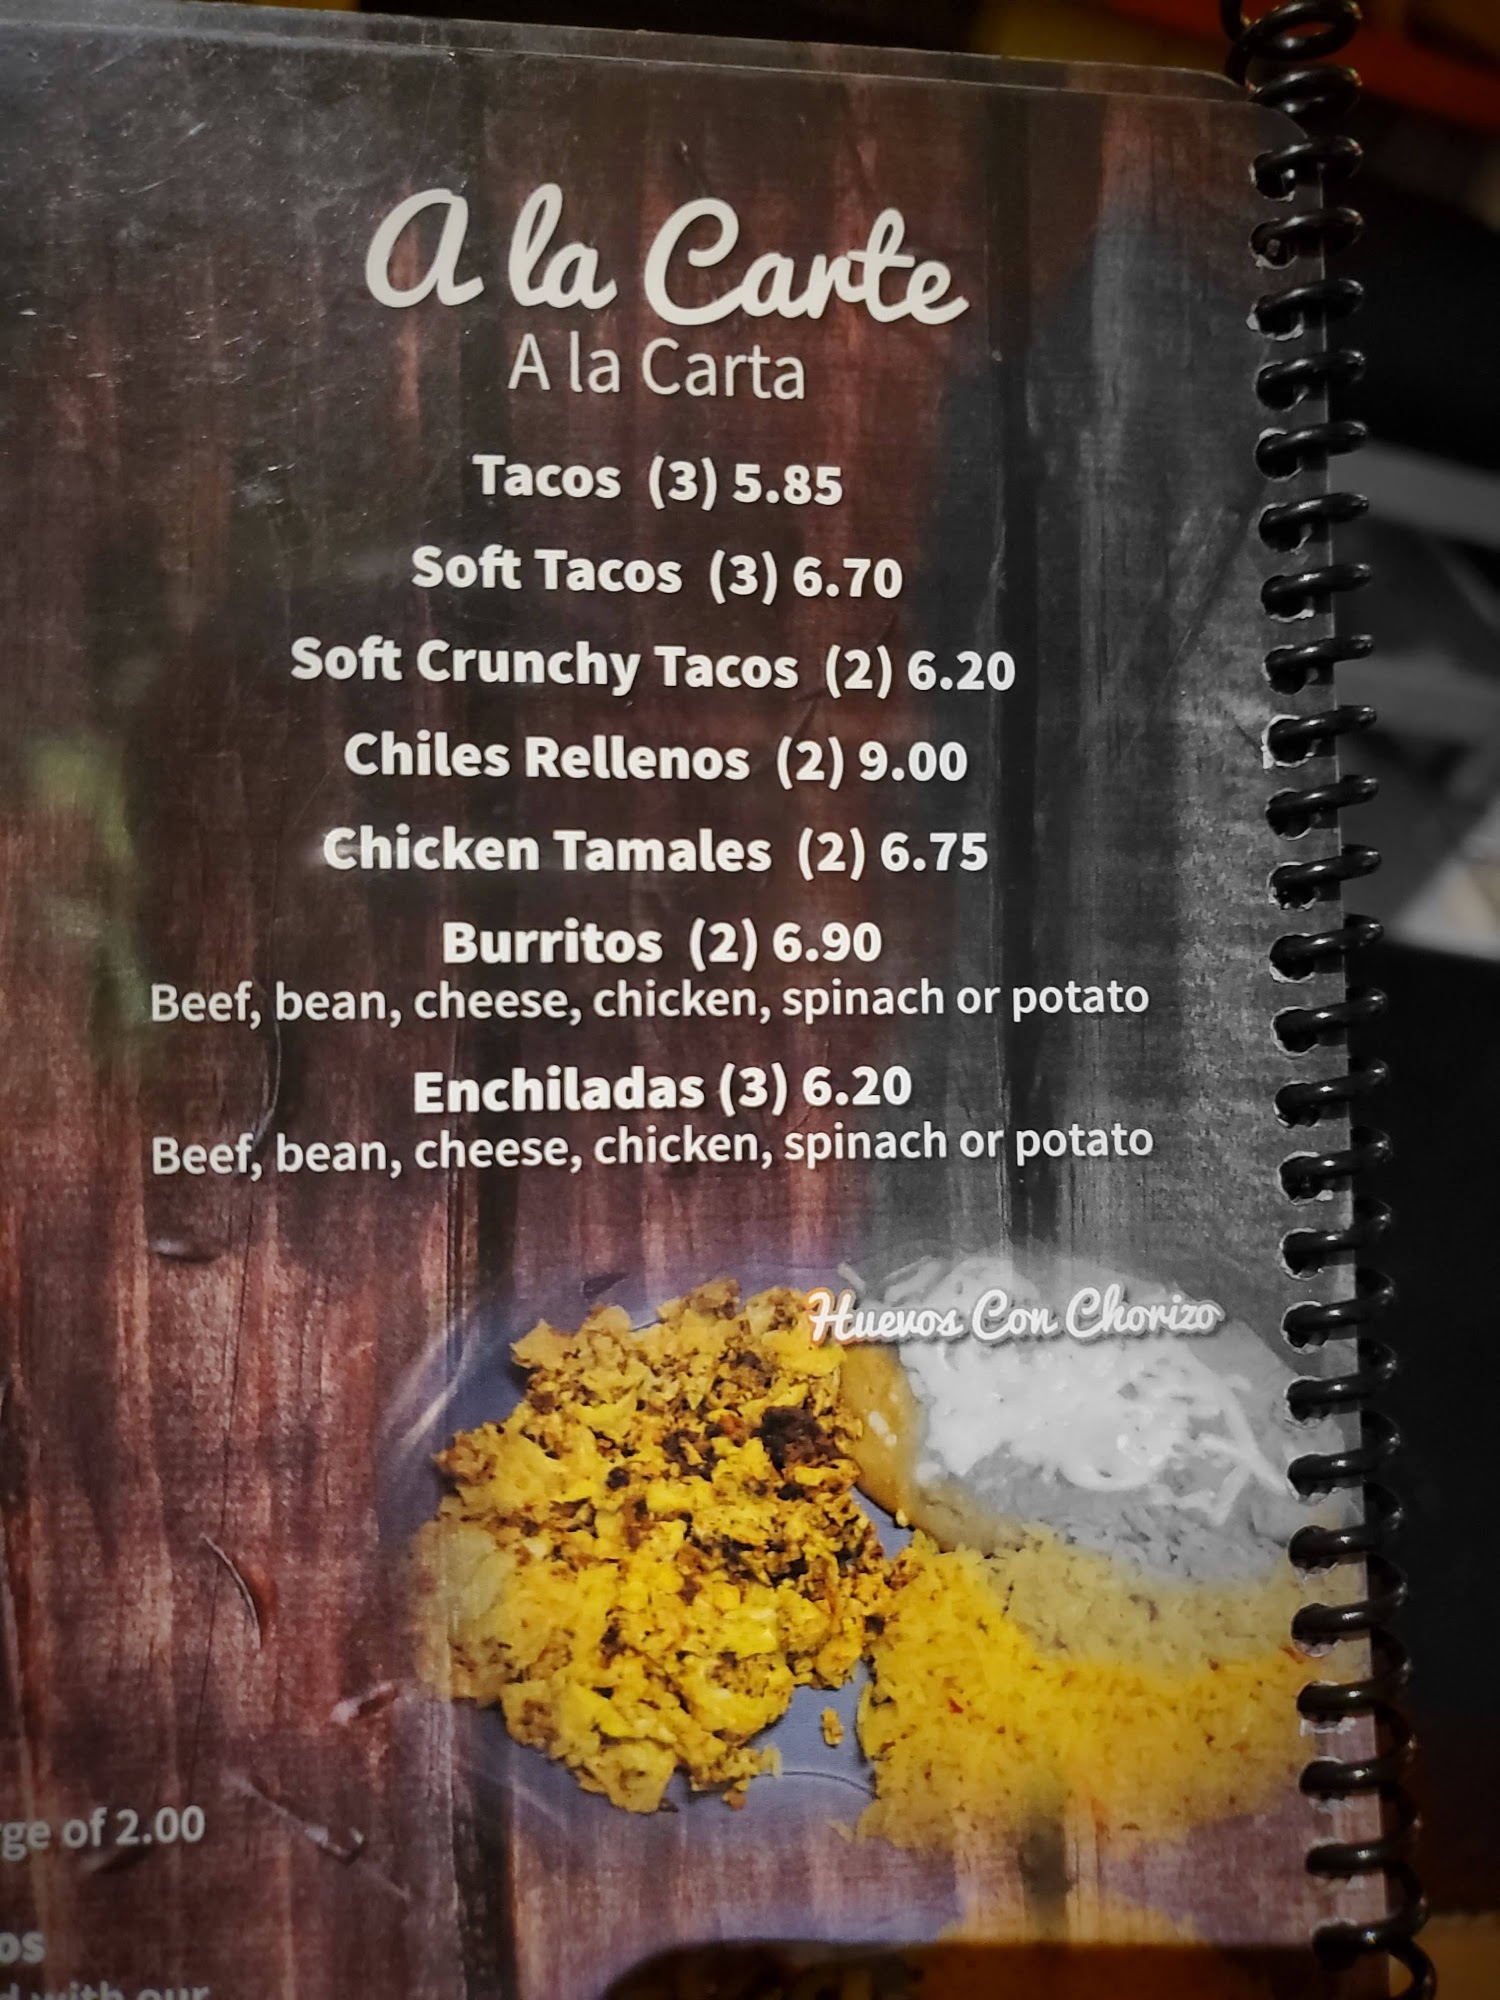 A la Carte
A la Carta
Tacos (3) 5.85
Soft Tacos (3) 6.70
Soft Crunchy Tacos (2) 6.20
Chiles Rellenos (2) 9.00
Chicken Tamales (2) 6.75
Burritos (2) 6.90
Beef, bean, cheese, chicken, spinach or potato
Enchiladas (3) 6.20
Beef, bean, cheese, chicken, spinach or potato
Huevos Con Chorizo
of 2.00
with our